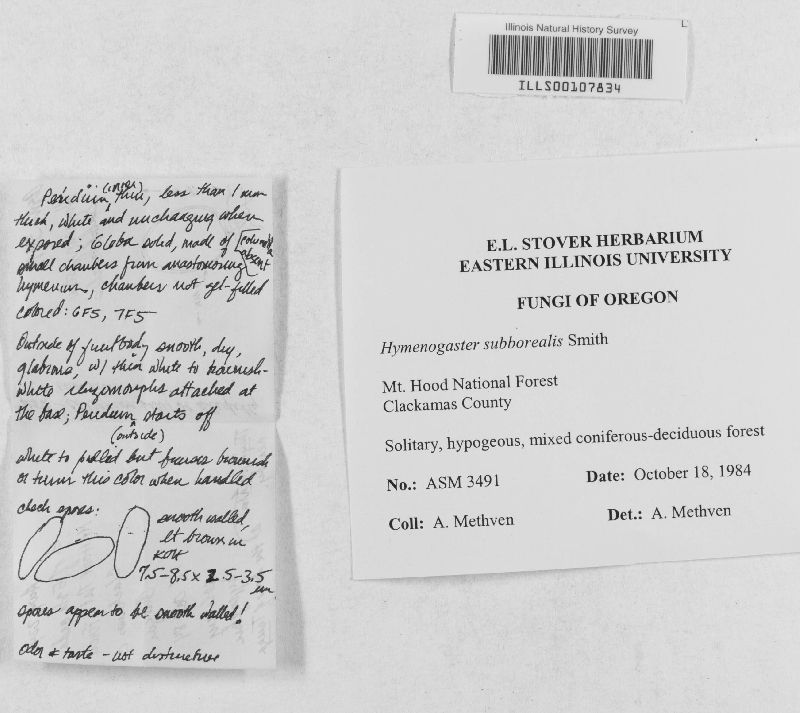 Illinois Natural History Survey
L
ILLS00107834
E.L. STOVER HERBARIUM
EASTERN ILLINOIS UNIVERSITY
FUNGI OF OREGON
Hymenogaster subborealis Smith
Mt. Hood National Forest
Clackamas County
Solitary, hypogeous, mixed coniferous-deciduous forest
No.: ASM 3491 Date: October 18, 1984
Coll: A. Methven Det.: A. Methven
(inner)
Peridium thin, less than 1 mm
thick, white and unchanging when
exposed; Gleba solid, made of [columella
small chambers from anastomosing absent
hymenium, chambers not gel-filled
colored: 6F5, 7F5
Outside of fruitbody smooth, dry,
glabrous, w/ thin white to brownish-
white rhizomorphs attached at
the base; Peridium starts off
(outside)
white to pallid but brownish
or turns this color when handled
check spores:
smooth walled,
lt brown in
KOH
7.5-8.5 x 2.5-3.5
um
spores appear to be smooth walled!
odor & taste - not distinctive